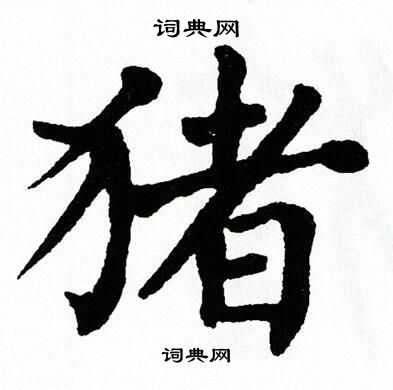 词典网
猪
词典网